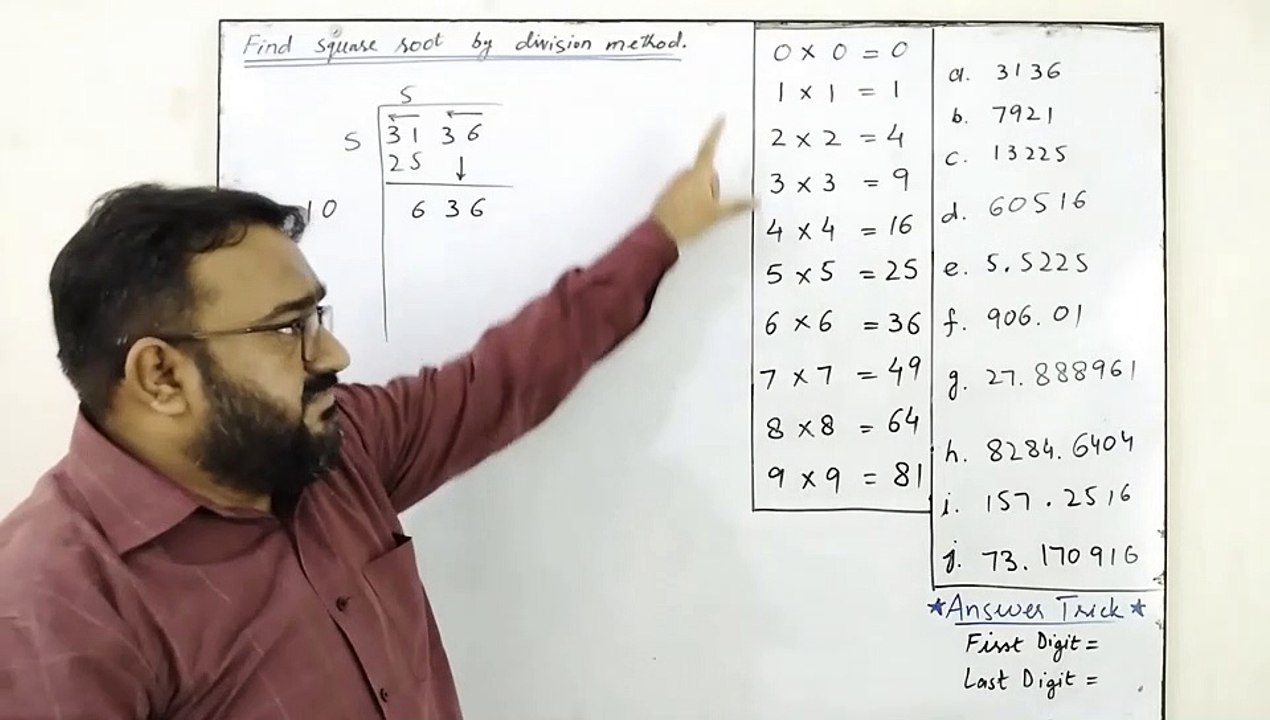 Find square root by division method.
5
5 31 36
25 ↓
10 6 36
0 × 0 = 0
1 × 1 = 1
2 × 2 = 4
3 × 3 = 9
4 × 4 = 16
5 × 5 = 25
6 × 6 = 36
7 × 7 = 49
8 × 8 = 64
9 × 9 = 81
a. 3136
b. 7921
c. 13225
d. 60516
e. 5.5225
f. 906.01
g. 27.888961
h. 8284.6404
i. 157.2516
j. 73.170916
★Answer Trick★
First Digit =
Last Digit =